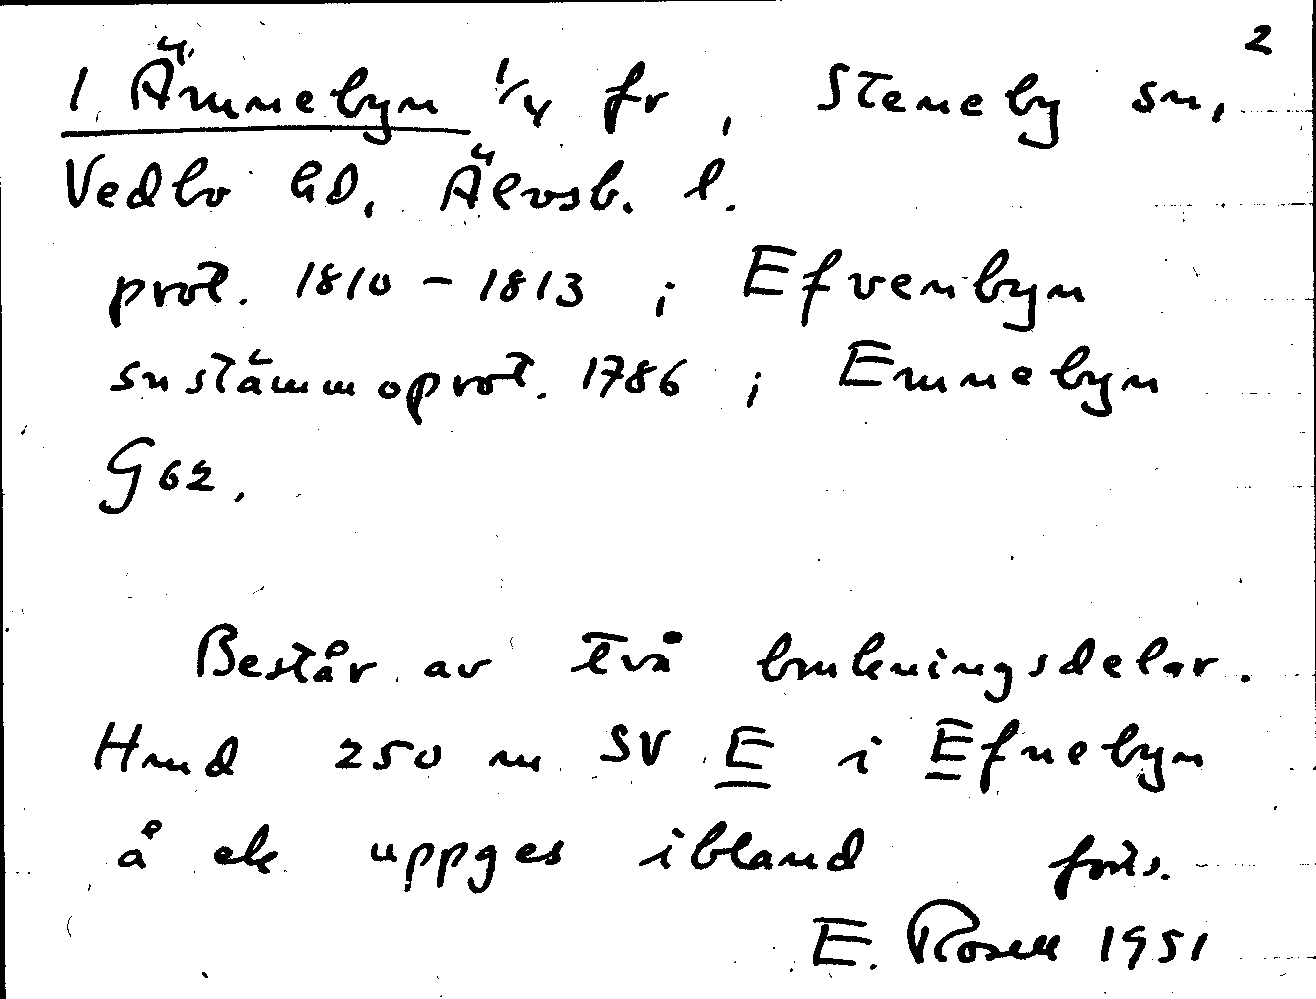 2
1 Ämnebyn 1/4 fr, Steneby sn,
Vedbo hd, Älvsb. l.
prot. 1810 - 1813 ; Efvenbyn
snstämmoprot. 1786 ; Emnebyn
G62.
Består av två brukningsdelar.
Hmd 250 m SV E i Efnebyn
å ek uppges ibland forts.
E. Rosell 1951